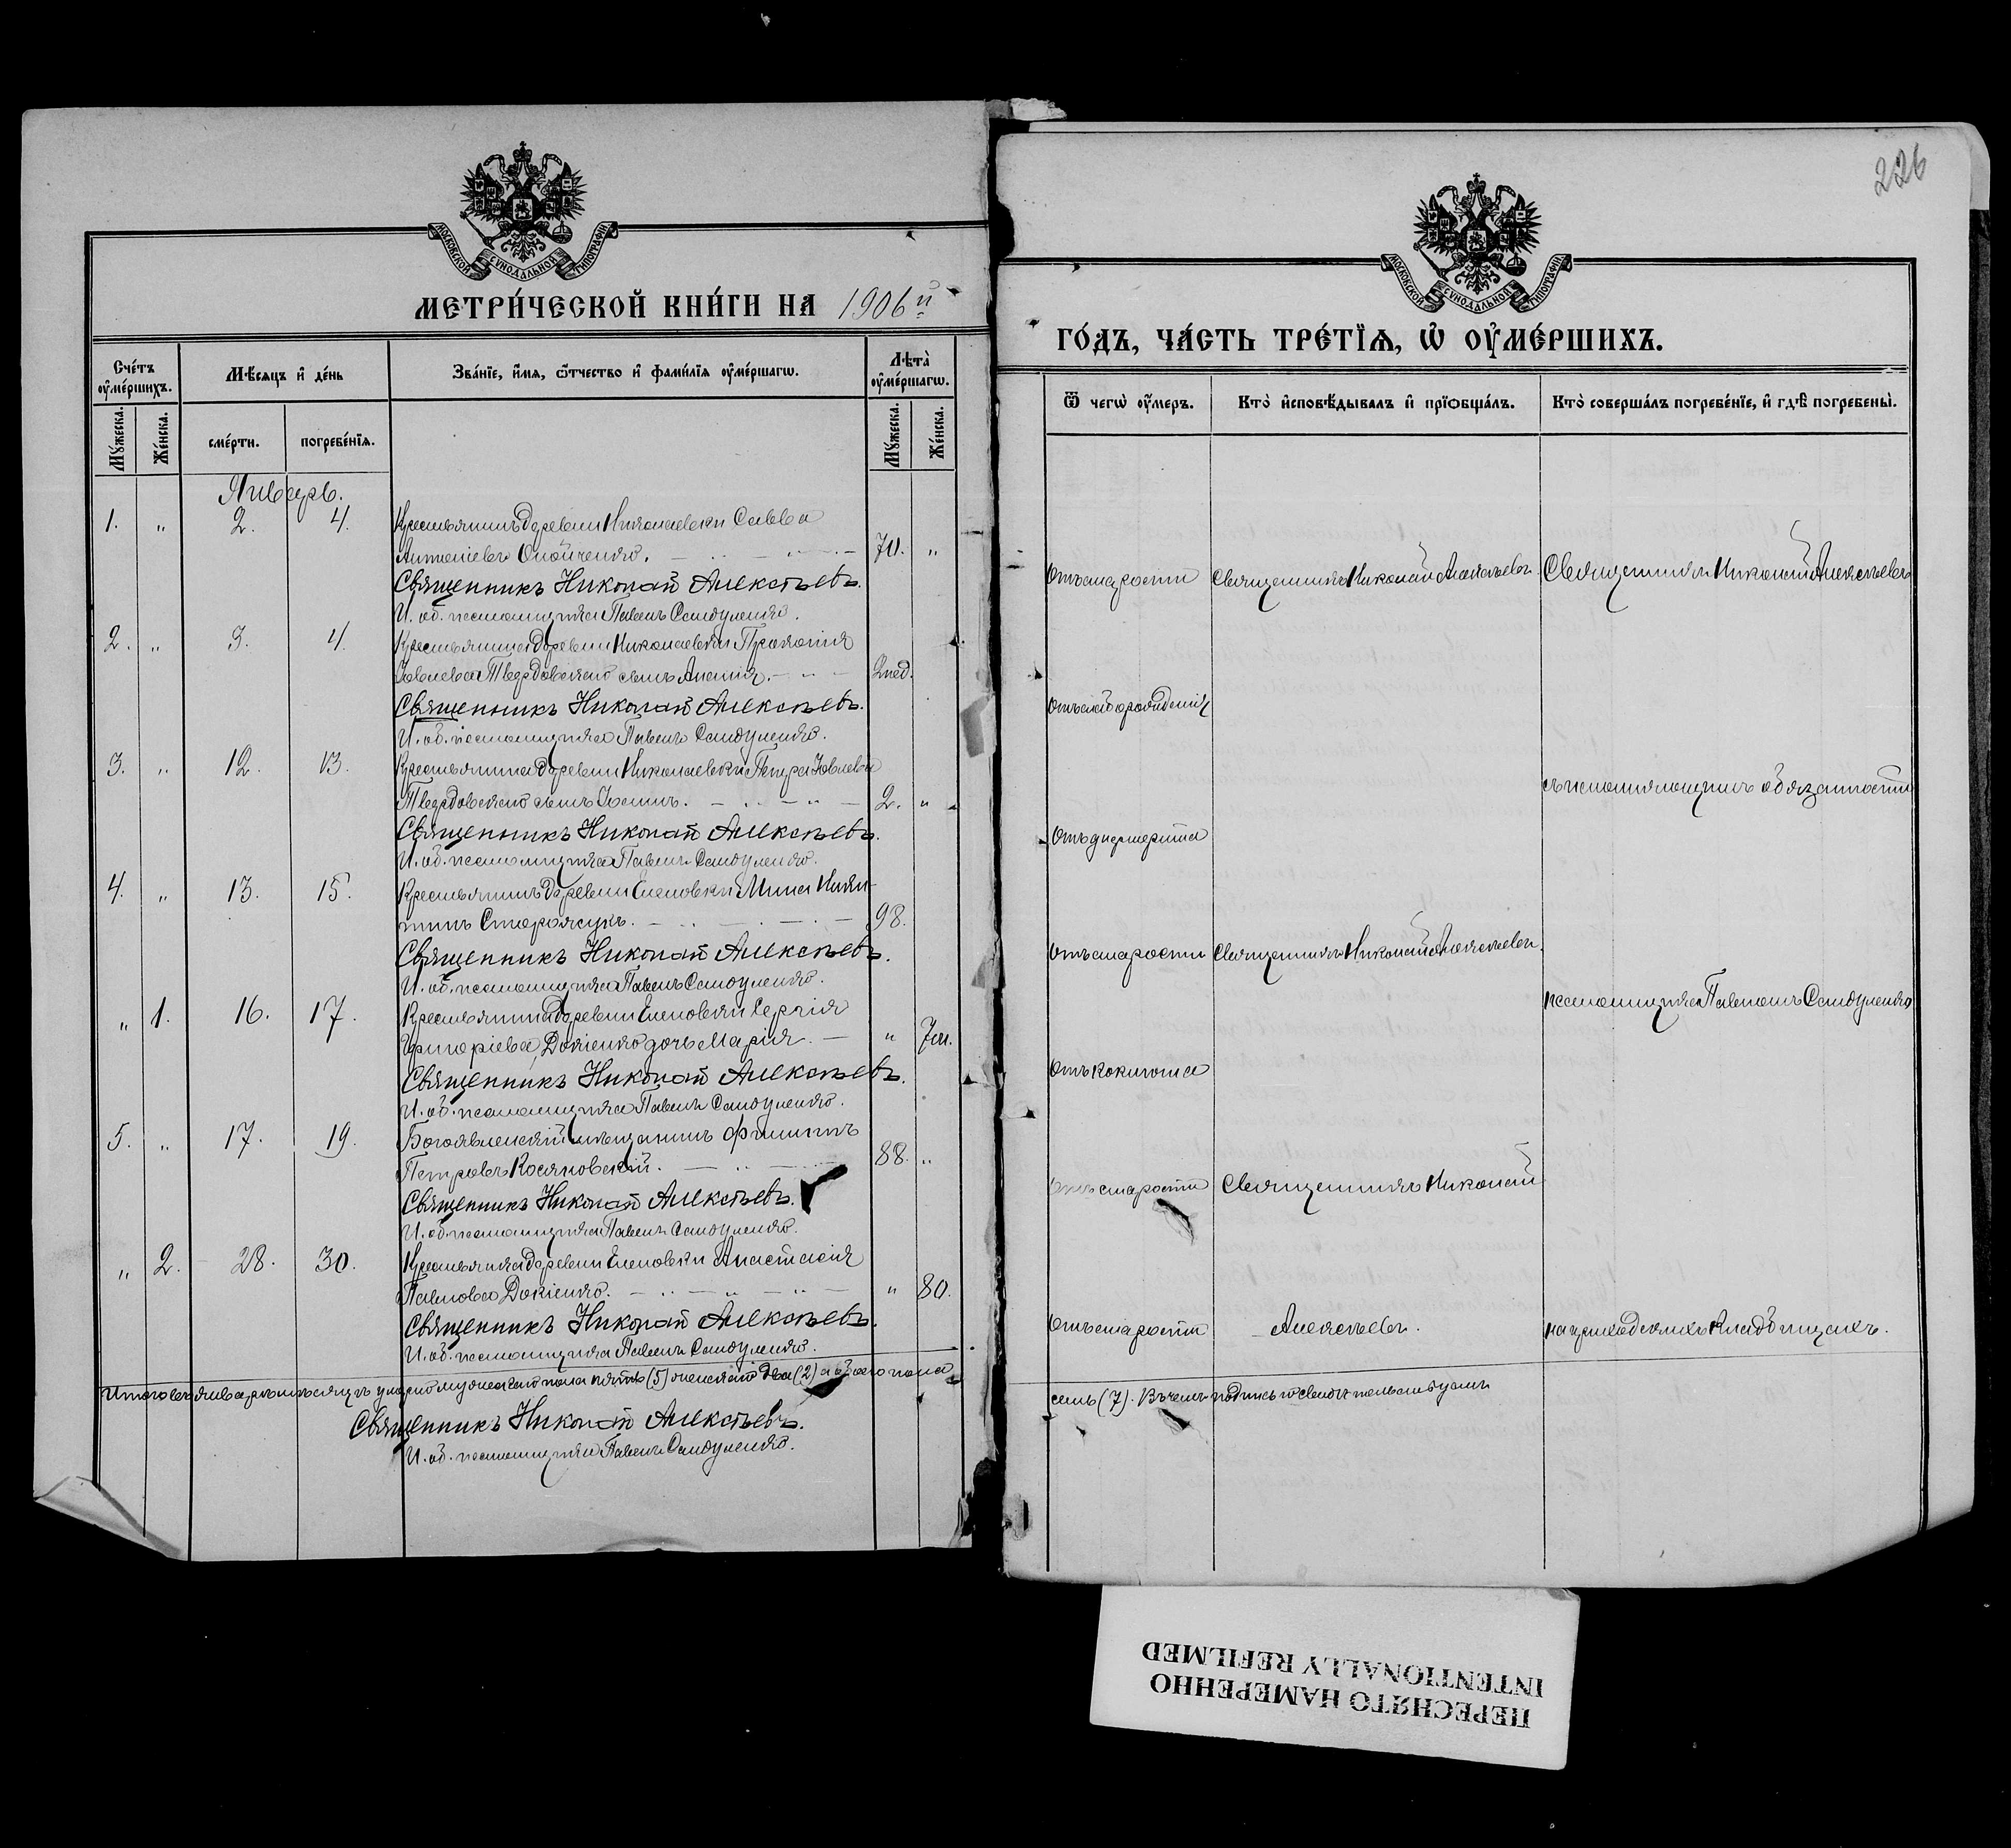 226
МОСКОВСКОЙ СУНОДАЛЬНОЙ ТИПОГРАФІИ
МЕТРИ́ЧЕСКОЙ КНИ́ГИ НА 1906й
Сче́тъ оу҆ме́ршихъ.
Мꙋ́жеска.
Же́нска.
Мѣ́сяцъ и҆ де́нь
сме́рти.
погребе́нїѧ.
Зва́нїе, и҆́мѧ, ѻ҆́тчество и҆ фами́лїѧ оу҆ме́ршагѡ.
Лѣта̀ оу҆ме́ршагѡ.
Мꙋ́жеска.
Же́нска.
Январь.
1. „ 2. 4. Крестьянинъ деревни Николаевки Савва
Антоніевъ Онойченко. 70. „
Священникъ Николай Алексѣевъ.
И. об. псаломщика Павелъ Сандуленко.
2. „ 3. 4. Крестьянина деревни Николаевки Прокопія
Іовлева Твердовскаго сынъ 2 нед.
Священникъ Николай Алексѣевъ.
И. об. псаломщика Павелъ Сандуленко.
3. „ 12. 13. Крестьянина деревни Николаевки Петра Іовлева
Твердовскаго сынъ Іоаннъ. 2. „
Священникъ Николай Алексѣевъ.
И. об. псаломщика Павелъ Сандуленко.
4. „ 13. 15. Крестьянинъ деревни Еленовки Мина Ники-
тинъ Сторожукъ. 98.
Священникъ Николай Алексѣевъ.
И. об. псаломщика Павелъ Сандуленко.
„ 1. 16. 17. Крестьянина деревни Еленовки Сергія
Григоріева Докіенко дочь Марія. „ 7 м.
Священникъ Николай Алексѣевъ.
И. об. псаломщика Павелъ Сандуленко.
5. „ 17. 19. Богоявленскій мѣщанинъ Филиппъ
Петровъ Косяковскій. 88. „
Священникъ Николай Алексѣевъ.
И. об. псаломщика Павелъ Сандуленко.
„ 2. 28. 30. Крестьянка деревни Еленовки Анастасія
Павлова Докіенко. „ 80.
Священникъ Николай Алексѣевъ.
И. об. псаломщика Павелъ Сандуленко.
Итого въ январѣ мѣсяцѣ умерло мужескаго пола пять (5) женскаго два (2) а обоего пола
Священникъ Николай Алексѣевъ.
И. об. псаломщика Павелъ Сандуленко.
МОСКОВСКОЙ СУНОДАЛЬНОЙ ТИПОГРАФІИ
ГО́ДЪ, ЧА́СТЬ ТРЕ́ТЇѦ, Ѡ҆ ОУ҆МЕ́РШИХЪ.
Ѿ чегѡ̀ оу҆́меръ.
Кто̀ и҆сповѣ́дывалъ и҆ прїѡбща́лъ.
Кто̀ соверша́лъ погребе́нїе, и҆ гдѣ̀ погребены̀.
Отъ старости Священникъ Николай Алексѣевъ. Священникъ Николай Алексѣевъ
Отъ слаборожденія
съ исполняющимъ обязанности
Отъ дифтерита
Отъ старости Священникъ Николай Алексѣевъ.
псаломщика Павломъ Сандуленко
Отъ коклюша
Отъ старости Священникъ Николай
Отъ старости Алексѣевъ. на приходскихъ кладбищахъ.
семь (7). Въ чемъ подписомъ свидѣтельствуемъ
ПЕРЕСНЯТО НАМЕРЕННО
INTENTIONALLY REFILMED